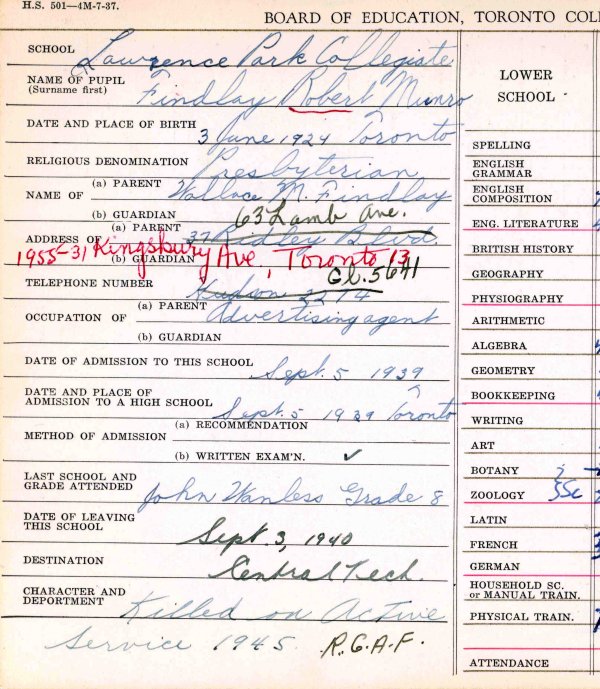 H.S. 501—4M-7-37.
BOARD OF EDUCATION, TORONTO COL
SCHOOL Lawrence Park Collegiate
NAME OF PUPIL (Surname first) Findlay Robert Munro
DATE AND PLACE OF BIRTH 3 June 1924 Toronto
RELIGIOUS DENOMINATION Presbyterian
NAME OF (a) PARENT Wallace M. Findlay
(b) GUARDIAN 63 Lamb Ave.
ADDRESS OF (a) PARENT 37 Ridley Blvd.
(b) GUARDIAN 1955-31 Kingsbury Ave, Toronto 13
Gl. 5641
TELEPHONE NUMBER Hudson 2274
OCCUPATION OF (a) PARENT Advertising agent
(b) GUARDIAN
DATE OF ADMISSION TO THIS SCHOOL Sept. 5 1939
DATE AND PLACE OF ADMISSION TO A HIGH SCHOOL Sept. 5 1939 Toronto
METHOD OF ADMISSION (a) RECOMMENDATION
(b) WRITTEN EXAM'N. ✓
LAST SCHOOL AND GRADE ATTENDED John Wanless Grade 8
DATE OF LEAVING THIS SCHOOL Sept. 3, 1940
DESTINATION Central Tech.
CHARACTER AND DEPORTMENT Killed on Active
Service 1945. R.C.A.F.
LOWER SCHOOL
SPELLING
ENGLISH GRAMMAR
ENGLISH COMPOSITION
ENG. LITERATURE
BRITISH HISTORY
GEOGRAPHY
PHYSIOGRAPHY
ARITHMETIC
ALGEBRA
GEOMETRY
BOOKKEEPING
WRITING
ART
BOTANY
ZOOLOGY
LATIN
FRENCH
GERMAN
HOUSEHOLD SC. or MANUAL TRAIN.
PHYSICAL TRAIN.
ATTENDANCE